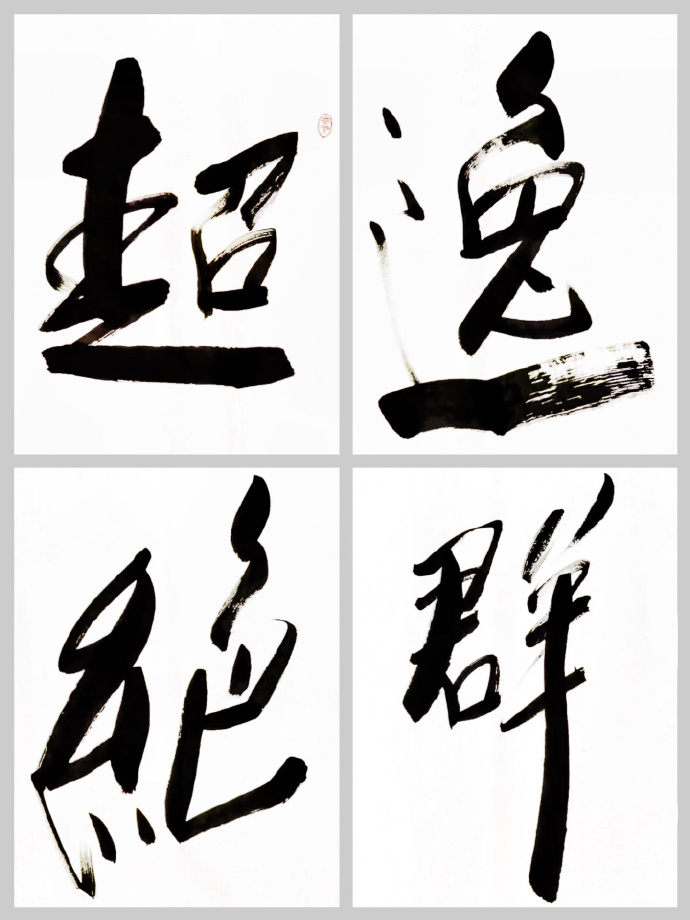 超逸
絕群